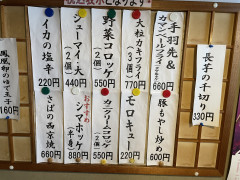 長芋の千切り
330円
手羽先&
カマンベールフライ
660円
豚もやし炒め
600円
大粒カキフライ
(3個)
770円
モロキュー
220円
野菜コロッケ
(2個)
550円
カニクリームコロッケ
(2個)
550円
シューマイ・大
(2個)
440円
おすすめ
シマホッケ
(半身)
880円
イカの塩辛
220円
さばの西京焼
660円
160円